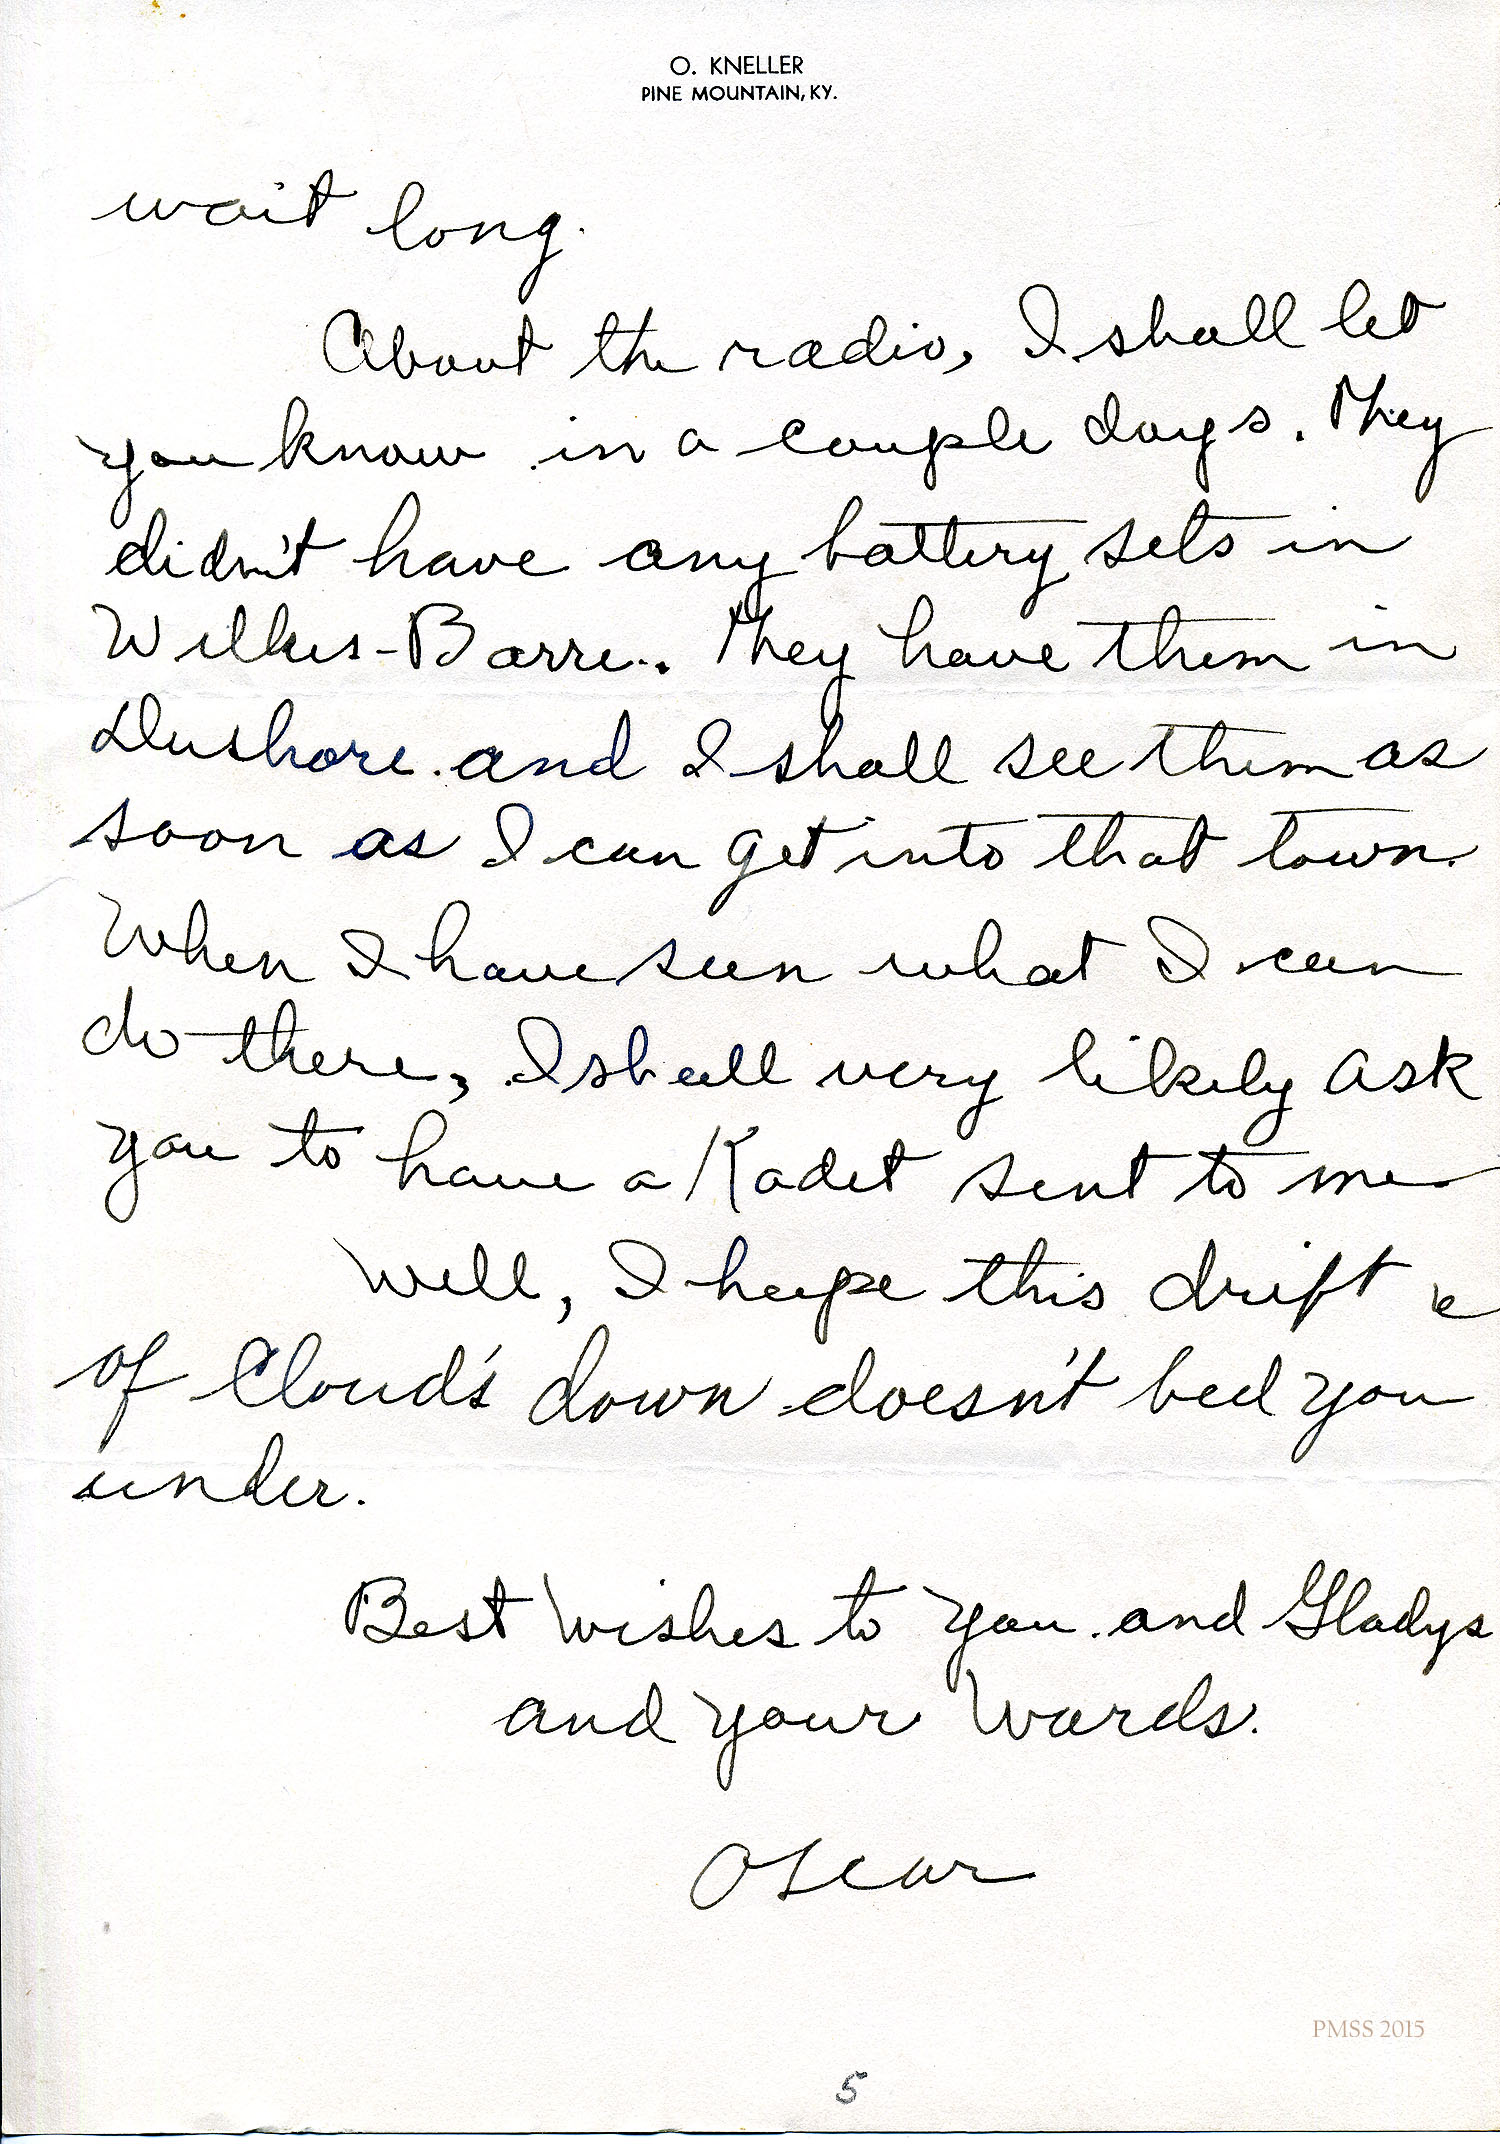 O. KNELLER
PINE MOUNTAIN, KY.
wait long.
About the radio, I shall let
you know in a couple days. They
didn't have any battery sets in
Wilkes-Barre. They have them in
Dushore and I shall see them as
soon as I can get into that town.
When I have seen what I can
do there, I shall very likely ask
you to have a Kadet sent to me
Well, I hope this drift
of Cloud's down doesn't bed you
under.
Best Wishes to you and Gladys
and your Wards.
Oscar
PMSS 2015
5